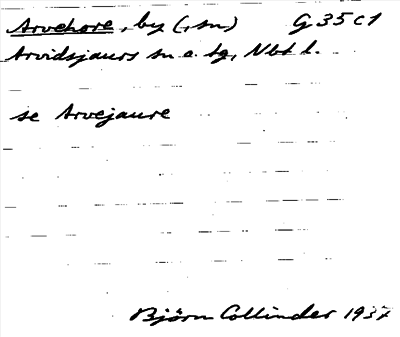 Arvehore, by (,sn) G 35 c 1
Arvidsjaurs sn o. tg, Nbt l.
se Arvejaure
Björn Collinder 1937